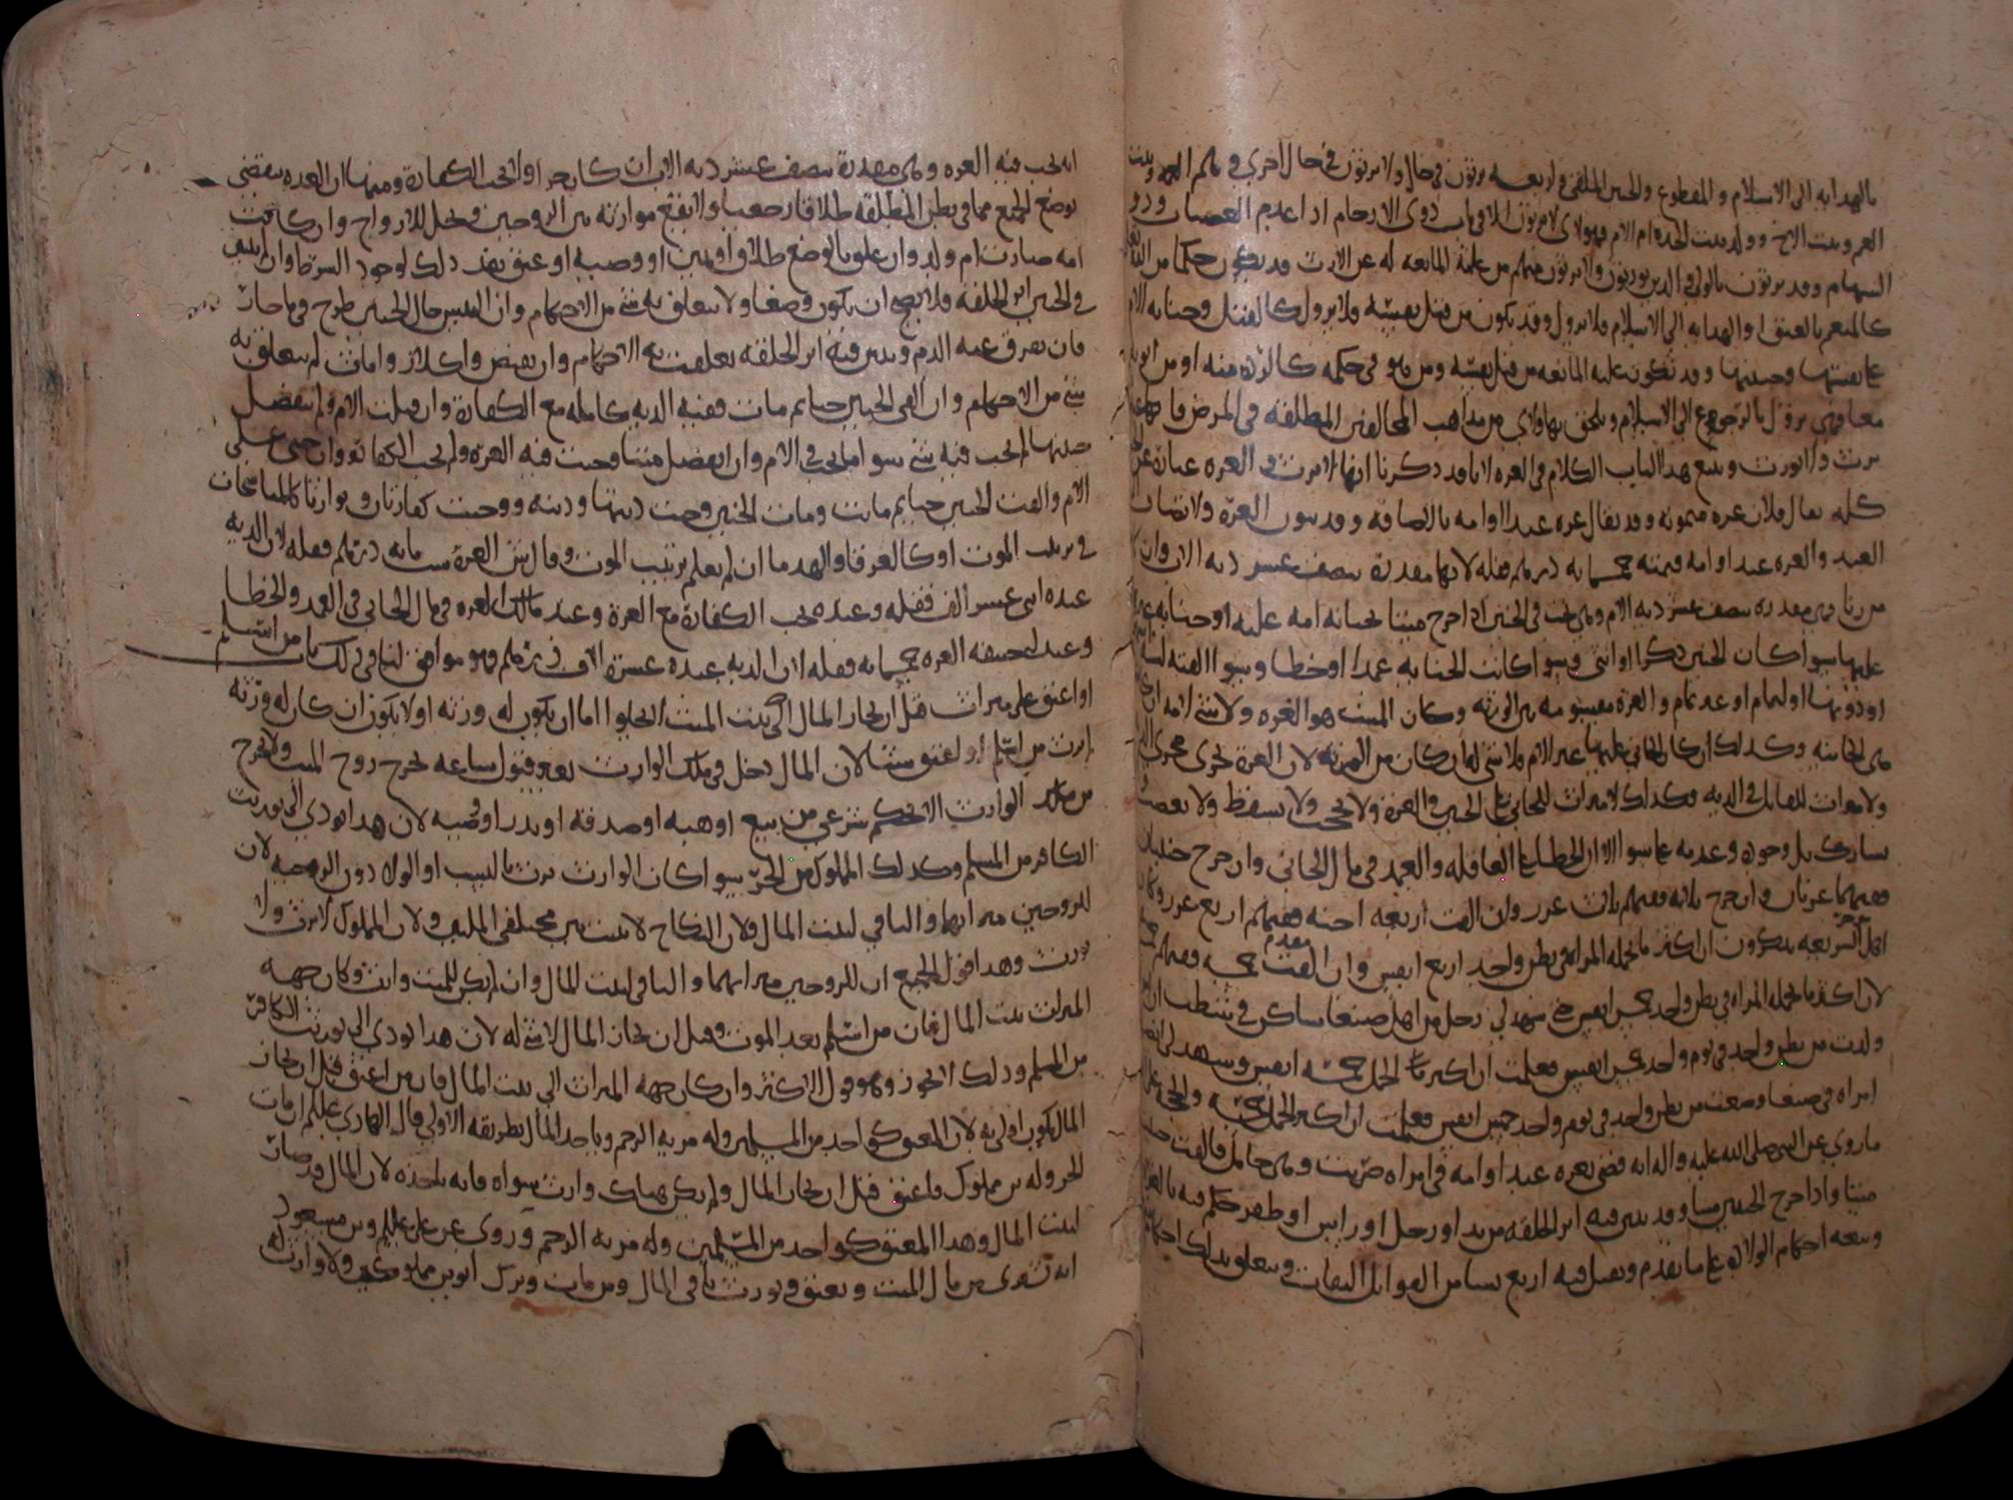 بالهدايه الى الاسلام والمقطوع والجنين الملقى واربعه يرثون في حال ولا يرثون في حال اخرى وهم العمه وبنت
العم وبنت الاخ وولد بنت الجده ام الام فهولاى لا يرثون الا في باب ذوى الارحام اذا عدم العصبات وذوو
السهام وقد يرثون بالولى والذين يورثون ولا يرثون منهم من علمة المانعه له عن الارث وقد يكون حكما من الله
كالمنعم بالعتق او الهدايه الى الاسلام فلا يزول وقد يكون من قبل نفسه فلا يزول كالقتل وجنايه الام
على نفسها وجنينها وقد تكون عليه المانعه من قبل نفسه ومن هو في حكمه كالرده منه او من ابويه
معا فهى تزول بالرجوع الى الاسلام ويلحق بهاولاى من مذاهب المخالفين المطلقه في المرض فانها
ترث ولا تورث ويتبع هذا الباب الكلام في الغره لانا قد ذكرنا انها لا ترث والغره عباره عن
كله يقال فلان غره ميمونه وقد يقال غره عبد او امه بالاضافه وقد ينون الغره ولا تضاف
العبد والغره عبد او امه قيمته خمسمايه درهم فضله لانها مقدرة بنصف عشر ديه الاب وان
من زنا فهى مقدره بنصف عشر ديه الام وهى تجب في الجنين اذا خرج ميتا بجنايه امه عليه او جنايه غيرها
عليها سوا كان الجنين ذكرا او انثى وسوا كانت الجنايه عمدا او خطا وسوا القته لسته
او دونها او لتمام او عدم تمام والغرة مقسومه بين الورثه وكان الميت هو الغره ولا شى لامه ان
هى الجانيه وكذلك ان كان الجانى عليها غير الام فلا شى له ان كان من الورثه لان الغرة تجرى مجرى الديه
ولا ميراث للقاتل في الديه فكذلك لا ميراث للجانى على الجنين في الغرة ولا يحجب ولا يسقط ولا يعصب
يشارك بل وجوده وعدمه على سوا الا ان الخطا على العاقله والعمد في مال الجانى وان خرج جنينان
ففيهما غرتان وان خرج ثلاثه ففيهم ثلاث غرر وان القت اربعه اجنه ففيهم اربع غرر وكان
اهل الشريعه يذكرون ان اكثر ما تحمله المراه في بطن واحد اربع انفس وان القت خمسه ففيهم خمس
لان اكثر ما تحمله المراه في بطن واحد خمس انفس حتى شهد لى رجل من اهل صنعا ساكن في شطب ان
ولدت من بطن واحد في يوم واحد خمس انفس فعلمت ان اكثر الحمل خمسه انفس وشهد لى بعض
امراه في صنعا وضعت من بطن واحد في يوم واحد خمس انفس فعلمت ان اكثر الحمل خمسه والحجه على
ماروى عن النبى صلى الله عليه واله انه قضى بغره عبد او امه في امراه ضربت وهى حامل فالقت جنينا
ميتا واذا خرج الجنين ميتا وقد تبين فيه اثر الخلقه من يد او رجل او راس او ظفر حكم فيه بالغره
ويتبعه احكام الولاده على ما تقدم ويقبل فيه اربع نسا من القوابل الثقات ويتعلق بذلك احكام
انه تجب فيه الغره وهى مقدرة بنصف عشر ديه الاب ان كان حرا ولا تجب الكفارة ومنها ان العده تنقضى
بوضع الجميع مما في بطن المطلقه طلاقا رجعيا ولا تقع موارثه بين الزوجين وتحل للازواج وان كانت
امه صارت ام ولد وان علق بالوضع طلاق او يمين او وصيه او عتق نفذ ذلك لوجود الشرط وان لم يتبين
في الجنين اثر الخلقه فلا يصح ان يكون وضعا ولا يتعلق به شى من الاحكام وان التبس حال الجنين طرح في ما حار
فان تفرق عنه الدم وتبين فيه اثر الخلقه تعلقت به الاحكام وان تقبض واكلاز واماث لم يتعلق به
شى من الاحكام وان القى الجنين حيا ثم مات ففيه الديه كامله مع الكفارة وان قتلت الام ولم ينفصل
جنينها لم تجب فيه شى سوا ما يجب في الام وان انفصل ميتا وجبت فيه الغره ولم تجب الكفاره وان جنى على
الام والقت الجنين حيا ثم ماتت ومات الجنين وجبت ديتها وديته ووجبت كفارتان وتوارثا كالمناسخات
في ترتيب الموت او كالغرقا والهدما ان لم يعلم ترتيب الموت وقال ش الغرة ست مايه درهم فضله لان الديه
عنده اثنى عشر الف فضله وعنده تجب الكفارة مع الغرة وعند مالك الغره في مال الجانى في العمد والخطا
وعند ابى حنيفه الغره خمسمايه فضله لان الديه عنده عشرة الاف درهم وهو موافق لنا في ذلك باب من اسلم
او اعتق على ميراث قبل ان يحاز المال الى بيت الميت لا يخلوا اما ان يكون له ورثه او لا يكون ان كان له ورثه
لم يرث من اسلم او اعتق شيا لان المال دخل في ملك الوارث بغير قبول ساعه تخرج روح الميت ولا يخرج
من ملك الوارث الا بحكم شرعى من بيع او هبه او صدقه او نذر او وصيه لان هذا يودى الى توريث
الكافر من المسلم وكذلك المملوك من الحر سوا كان الوارث يرث بالنسب او الولا دون الزوجيه لان
للزوجين ميراثهما والباقى لبيت المال ولان النكاح لا يثبت بين مختلفى الملتين ولان المملوك لا يرث ولا
يورث وهذا قول الجميع ان للزوجين ميراثهما والباقى لبيت المال وان لم يكن للميت وارث وكان جهه
الميراث بيت المال فان من اسلم بعد الموت وقبل ان يحاز المال لا شى له لان هذا يودى الى توريث الكافر
من المسلم وذلك لا يجوز وهو قول الاكثر وان كان جهه الميراث الى بيت المال فان من اعتق قبل ان يحاز
المال يكون اولى به لان المعتق كواحد من المسلمين وله مزيه الرحم وياخذ المال بطريقه الاولى قال الهادى عليلم ان مات
الحر وله بن مملوك فاعتق قبل ان يحاز المال ولم يكن هناك وارث سواه فانه ياخذه لان المال قد صار
لبيت المال وهذا المعتق كواحد من المسلمين وله مزيه الرحم وروى عن على عليلم وبن مسعود
انه تشترى من مال الميت ويعتق ويورث باقى المال ومن مات وترك ابوين مملوكين ولا وارث له